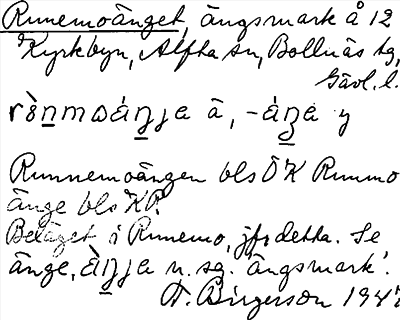 Runemoänget, ängsmark å 12
Kyrkbyn, Alfta sn, Bollnäs tg,
Gävl. l.
rò̀nmoáŋja ä, -áŋe y
Runnemoängen bls ÖK Runmo
änge bls KP.
Beläget i Runemo, jfr detta. Se
änge, àŋja n. sg. 'ängsmark'.
Birgerson 194